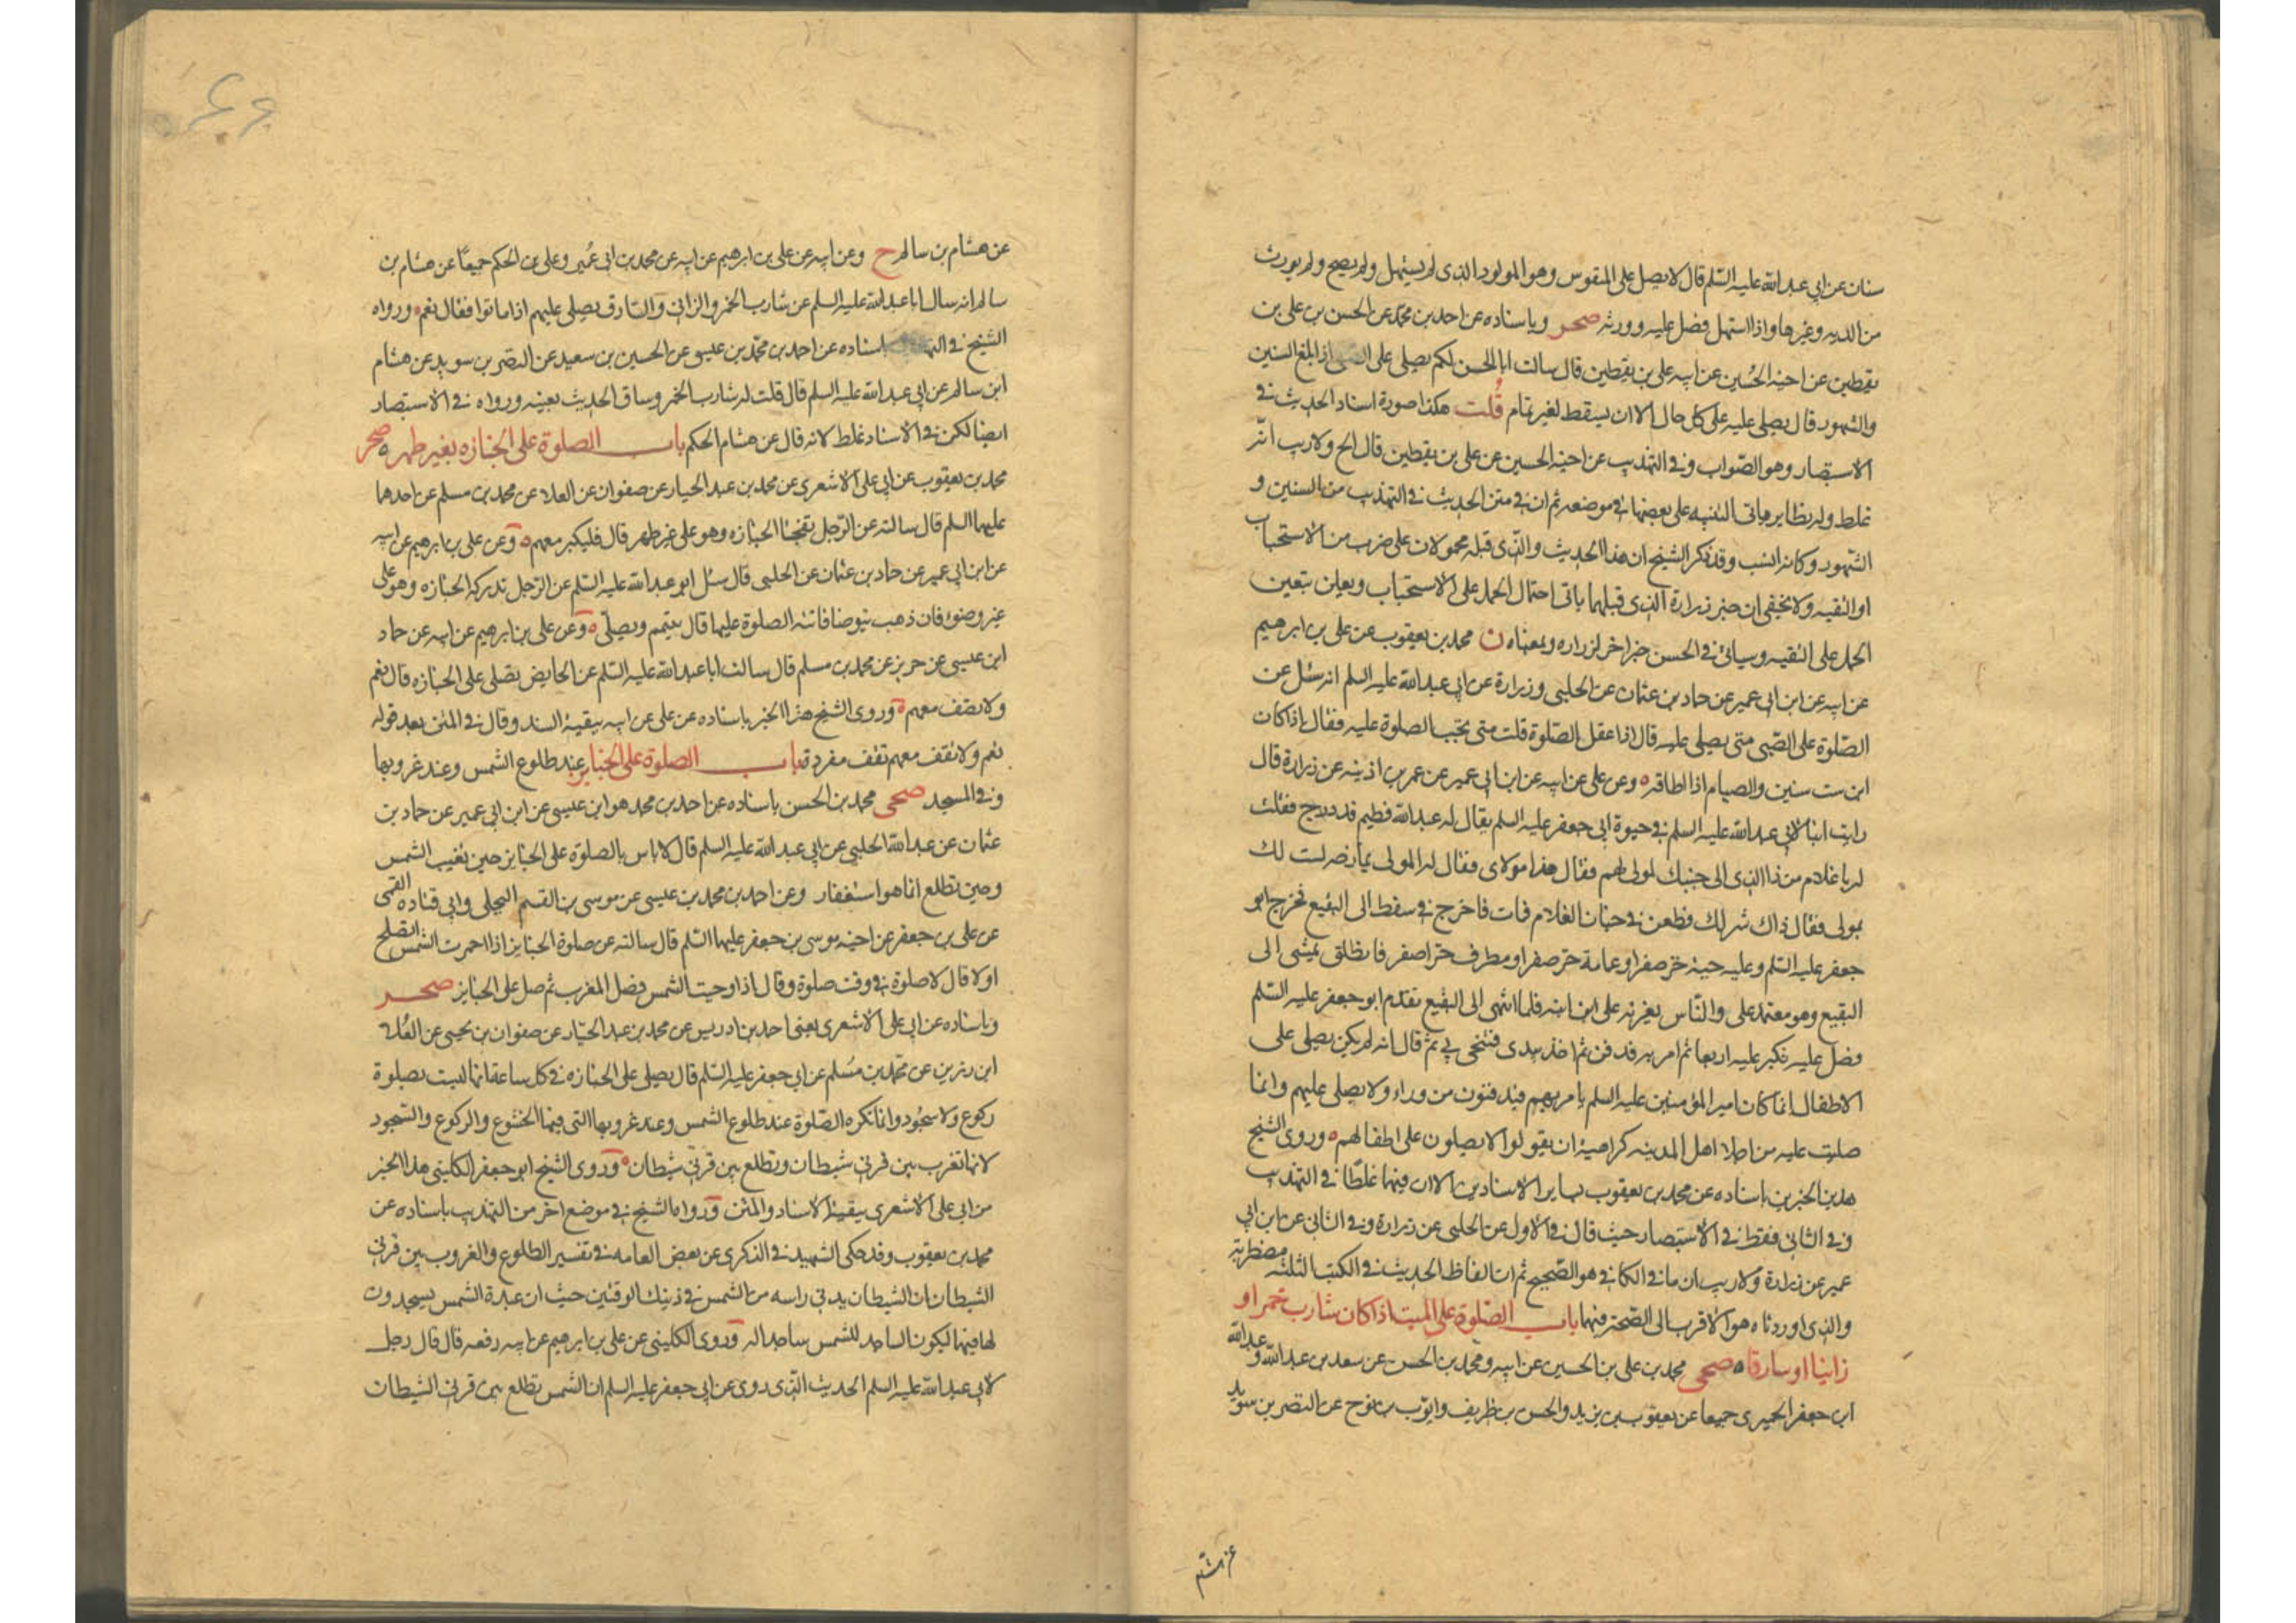 سنان عن ابي عبد الله عليه السّلم قال لا يصل على المنفوس وهو المولود الذى لم يستهل ولم يصح ولم يورث
من الديه وغيرها واذا استهل فصل عليه وورثه صحر وباسناده عن احمد بن محمّد عن الحسن بن على بن
يقطين عن اخيه الحُسين عن ابيه على بن يقطين قال سالت ابا الحسن لكم يصلى على اذا بلغ السنين
والشهور قال يصلى عليه على كل حال الا ان يسقط لغير تمام قُلت هكذا صورة اسناد الحديث فى
الاستبصار وهو الصّواب وفى التهذيب عن اخيه الحسين عن على بن يقطين قال الخ ولا ريب انّه
غلط وله نظاير ياتى التنبيه على بعضها فى موضعه ثم ان فى متن الحديث فى التهذيب من السنين و
الشّهور وكانه انسب وقد ذكر الشيخ ان هذا الحديث والذّى قبله محمولان على ضرب من الاستحباب
او التقيه ولا يخفى ان خبر زرارة الذى قبلهما ياتى احتمال الحمل على الاستحباب ويعلن بتعين
الحمل على التقيه وسياتى فى الحسن خبر اخر لزراره وبمعناه ن محمد بن يعقوب عن على بن ابرهيم
عن ابيه عن ابن ابى عمير عن حماد بن عثمان عن الحلبى وزرارة عن ابى عبد الله عليه السلم انه سئل عن
الصّلوة على الصّبى متى يصلى عليه قال اذا عقل الصّلوة قلت متى يجب الصلوة عليه فقال اذا كان
ابن ست سنين والصيام اذا اطاقه ه وعن على عن ابيه عن ابن ابى عمير عن عمر بن اذينه عن زرارة قال
رايت ابنا لابى عبد الله عليه السلم فى حيوة ابى جعفر عليه السلم يقال له عبد الله فطيم قد درج فقلت
له يا غلام من ذا الذى الى جنبك لمولى لهم فقال هذا مولاى فقال له المولى يمازحه لست لك
بمولى فقال ذاك شر لك فطعن فى جنان الغلام فمات فاخرج فى سفط الى البقيع فخرج ابو
جعفر عليه السّلم وعليه جبة خز صفرا وعمامة خز صفرا ومطرف خز اصفر فانطلق يمشى الى
البقيع وهو معتمد على والنّاس يعزونه على ابن ابنه فلما انتهى الى البقيع تقدم ابو جعفر عليه السّلم
فصل عليه فكبر عليه اربعا ثم امر به فدفن ثم اخذ بيدى فتنحى بى ثم قال انه لم يكن يصلى على
الاطفال انما كان امير المؤمنين عليه السلم يامر بهم فيدفنون من وراء ولا يصلى عليهم وانما
صليت عليه من اجل اهل المدينه كراهية ان يقولوا لا يصلون على اطفالهم ه وروى الشيخ
هذين الخبرين باسناده عن محمد بن يعقوب بساير الاسنادين الا ان فيهما غلطًا فى التهذيب
وفى الثانى فقط فى الاستبصار حيث قال فى الأول عن الحلبى عن زرارة وفى الثانى عن ابن ابى
عمير عن زرارة ولا ريب ان ما فى الكافى هو الصّحيح ثم ان الفاظ الحديث فى الكتب الثلثه مضطربة
والذى اوردناه هو الاقرب الى الصّحة منها باب الصّلوة على الميت اذا كان شارب خمر او
زانيا او سارقا ه صحى محمد بن على بن الحسين عن ابيه ومحمد بن الحسن عن سعد بن عبد الله وعبد الله
ابن جعفر الحميرى جميعا عن يعقوب بن يزيد والحسن بن ظريف وايّوب بن نوح عن النضر بن سويد
عن هشام
عن هشام بن سالم ح وعن ابيه عن على بن ابرهيم عن ابيه عن محمد بن ابى عُمير وعلى بن الحكم جميعًا عن هشام بن
سالم انه سال ابا عبد الله عليه السلم عن شارب الخمر والزانى والسّارق يصلى عليهم اذا ماتوا فقال نعم ه ورواه
الشيخ فى باسناده عن احمد بن محمّد بن عيسى عن الحسين بن سعيد عن النضر بن سويد عن هشام
ابن سالم عن ابى عبد الله عليه السلم قال قلت له شارب الخمر وساق الحديث بعينه ورواه فى الاستبصار
ايضا لكن فى الاسناد غلط لانه قال عن هشام الحكم باب الصلوة على الجنازه بغير طهر ه صحر
محمد بن يعقوب عن ابى على الاشعرى عن محمد بن عبد الجبار عن صفوان عن العلاء عن محمد بن مسلم عن احدهما
عليهما السلم قال سالته عن الرّجل تفجئا الجنازه وهو على غير طهر قال فليكبر معهم ه وعن على بن ابرهيم عن ابيه
عن ابن ابى عمير عن حماد بن عثمان عن الحلبى قال سئل ابو عبد الله عليه السّلم عن الرّجل تدركه الجنازه وهو على
غير وضوء فان ذهب يتوضا فاتته الصلوة عليها قال يتيمم ويصلّى ه وعن على بن ابرهيم عن ابيه عن حماد
ابن عيسى عن حريز عن محمد بن مسلم قال سالت ابا عبد الله عليه السّلم عن الحايض تصلى على الجنازه قال نعم
ولا تصف معهم ه وروى الشيخ هذا الخبر باسناده عن على عن ابيه ببقية السند وقال فى المتن بعد قوله
نعم ولا تقف معهم تقف مفردة باب الصلوة على الجنايز عند طلوع الشمس وعند غروبها
وفى المسجد صحى محمد بن الحسن باسناده عن احمد بن محمد هو ابن عيسى عن ابن ابى عمير عن حماد بن
عثمان عن عبد الله الحلبى عن ابى عبد الله عليه السلم قال لا باس بالصلوة على الجنايز حين تغيب الشمس
وحين تطلع انما هو استغفار وعن احمد بن محمد بن عيسى عن موسى بن القسم البجلى وابى قتاده القمى
عن على بن جعفر عن اخيه موسى بن جعفر عليهما السّلم قال سالته عن صلوة الجنايز اذا احمرت الشمس اتصلح
اولا قال لا صلوة فى وقت صلوة وقال اذا وجبت الشمس فصل المغرب ثم صل على الجنايز صحر
وباسناده عن ابى على الاشعرى يعنى احمد بن ادريس عن محمد بن عبد الجبار عن صفوان بن يحيى عن العُلا
ابن رزين عن محمّد بن مُسلم عن ابى جعفر عليه السّلم قال يصلى على الجنازه فى كل ساعة انها ليست بصلوة
ركوع ولا سجُود وانما تكره الصّلوة عند طلوع الشمس وعند غروبها التى فيها الخشوع والركوع والسّجود
لانها تغرب بين قرنى شيطان وتطلع بين قرنى شيطان ه وروى الشيخ ابو جعفر الكلينى هذا الخبر
من ابى على الاشعرى ببقية الاسناد والمتن ورواه الشيخ فى موضع اخر من التهذيب باسناده عن
محمد بن يعقوب وقد حكى الشهيد فى الذكرى عن بعض العامه فى تفسير الطلوع والغروب بين قرنى
الشيطان ان الشيطان يدنى راسه من الشمس فى ذينك الوقتين حيث ان عبدة الشمس يسجدون
لها فيهما ليكون الساجد للشمس ساجدا له وروى الكلينى عن على بن ابرهيم عن ابيه رفعه قال قال رجل
لابى عبد الله عليه السلم الحديث الذّى روى عن ابى جعفر عليه السلم ان الشمس تطلع بين قرنى الشيطان